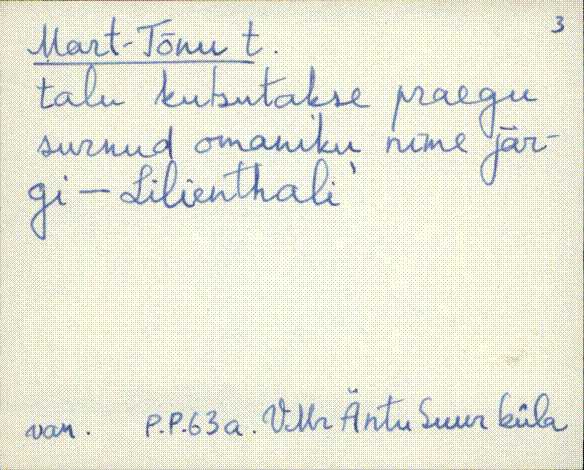 3
Mart-Tõnu t.
talu kutsutakse praegu
surnud omaniku nime jär-
gi – Lilienthali'
van. P.P.63a. V.Mr Äntu Suur küla